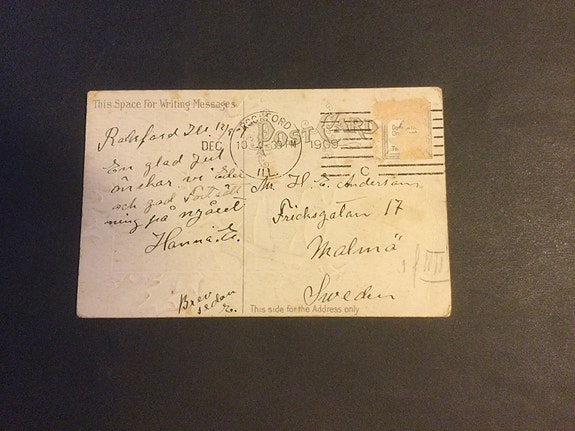 This Space For Writing Messages
Rockford Ill. 12/9
En glad Jul
önskar vi Eder
och god
ning på nyåret
Hanna
Brev
sedan
ROCKFORD
ILL.
DEC 10 4-30PM 1909
POST CARD
Mr. H. E. Anderson
Fricksgatan 17
Malmö
Sweden
This side for the Address only